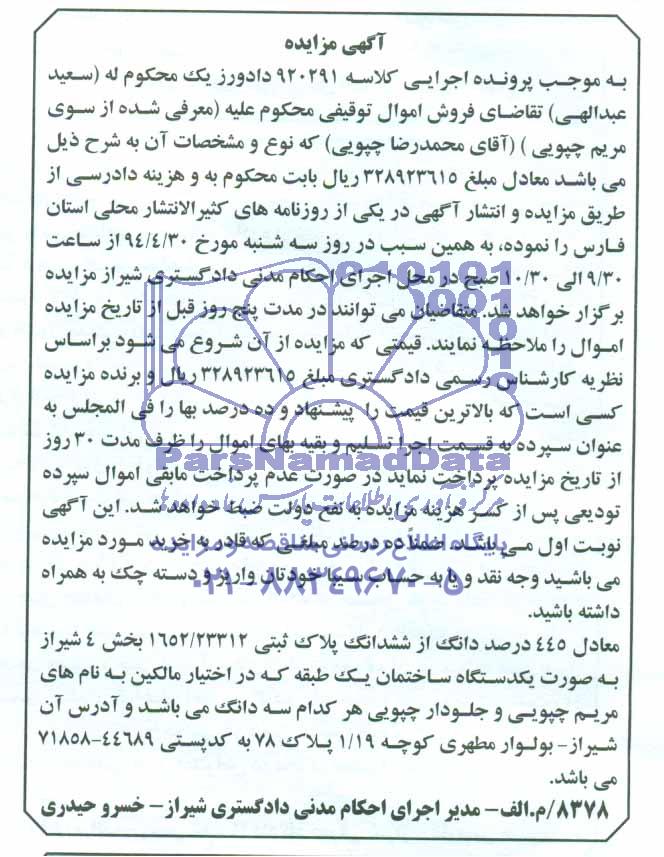 آگهی مزایده
به موجب پرونده اجرایی کلاسه ۹۲۰۲۹۱ دادورز یک محکوم له (سعید
عبدالهی) تقاضای فروش اموال توقیفی محکوم علیه (معرفی شده از سوی
مریم چپویی ) (آقای محمدرضا چپویی) که نوع و مشخصات آن به شرح ذیل
می باشد معادل مبلغ ۳۲۸۹۲۳۶۱۵ ریال بابت محکوم به و هزینه دادرسی از
طریق مزایده و انتشار آگهی در یکی از روزنامه های کثیرالانتشار محلی استان
فارس را نموده، به همین سبب در روز سه شنبه مورخ ۹۴/۴/۳۰ از ساعت
۹/۳۰ الی ۱۰/۳۰ صبح در محل اجرای احکام مدنی دادگستری شیراز مزایده
برگزار خواهد شد. متقاضیان می توانند در مدت پنج روز قبل از تاریخ مزایده
اموال را ملاحظه نمایند. قیمتی که مزایده از آن شروع می شود براساس
نظریه کارشناس رسمی دادگستری مبلغ ۳۲۸۹۲۳۶۱۵ ریال و برنده مزایده
کسی است که بالاترین قیمت را پیشنهاد و ده درصد بها را فی المجلس به
عنوان سپرده به قسمت اجرا تسلیم و بقیه بهای اموال را ظرف مدت ۳۰ روز
از تاریخ مزایده پرداخت نماید در صورت عدم پرداخت مابقی اموال سپرده
تودیعی پس از کسر هزینه مزایده به نفع دولت ضبط خواهد شد. این آگهی
نوبت اول می باشد. ضمناً ده درصد مبلغی که قادر به خرید مورد مزایده
می باشید وجه نقد و یا به حساب سیبا خودتان واریز و دسته چک به همراه
داشته باشید.
معادل ۴۴۵ درصد دانگ از ششدانگ پلاک ثبتی ۱۶۵۲/۲۳۳۱۲ بخش ۴ شیراز
به صورت یکدستگاه ساختمان یک طبقه که در اختیار مالکین به نام های
مریم چپویی و جلودار چپویی هر کدام سه دانگ می باشد و آدرس آن
شیراز- بولوار مطهری کوچه ۱/۱۹ پلاک ۷۸ به کدپستی ۴۴۶۸۹-۷۱۸۵۸
می باشد.
۸۳۷۸/م.الف- مدیر اجرای احکام مدنی دادگستری شیراز- خسرو حیدری
ParsNamadData
پایگاه اطلاع رسانی مناقصه و مزایده
۰۲۱-۸۸۳۴۹۶۷۰-۵